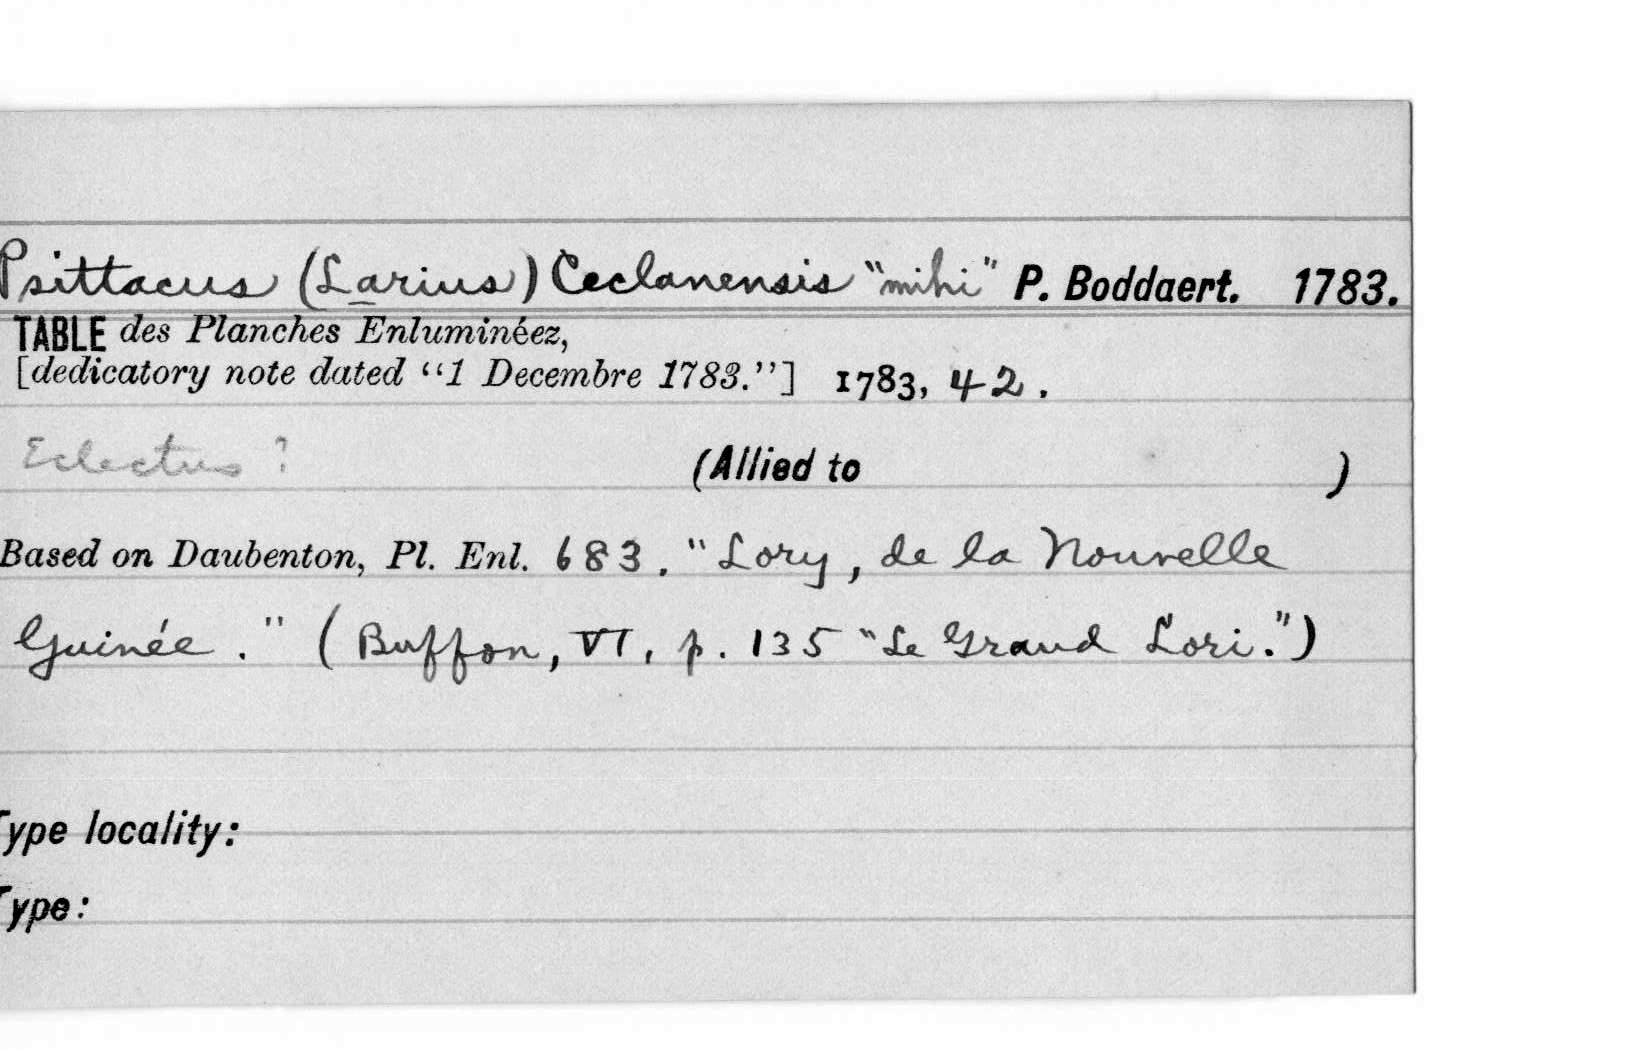 Psittacus (Larius) Ceclanensis "mihi" P. Boddaert. 1783.
TABLE des Planches Enluminéez,
[dedicatory note dated "1 Decembre 1783."] 1783, 42.
Eclectus ? (Allied to )
Based on Daubenton, Pl. Enl. 683. "Lory, de la Nouvelle
Guinée." (Buffon, VI, p. 135 "Le Grand Lori.")
Type locality:
Type: